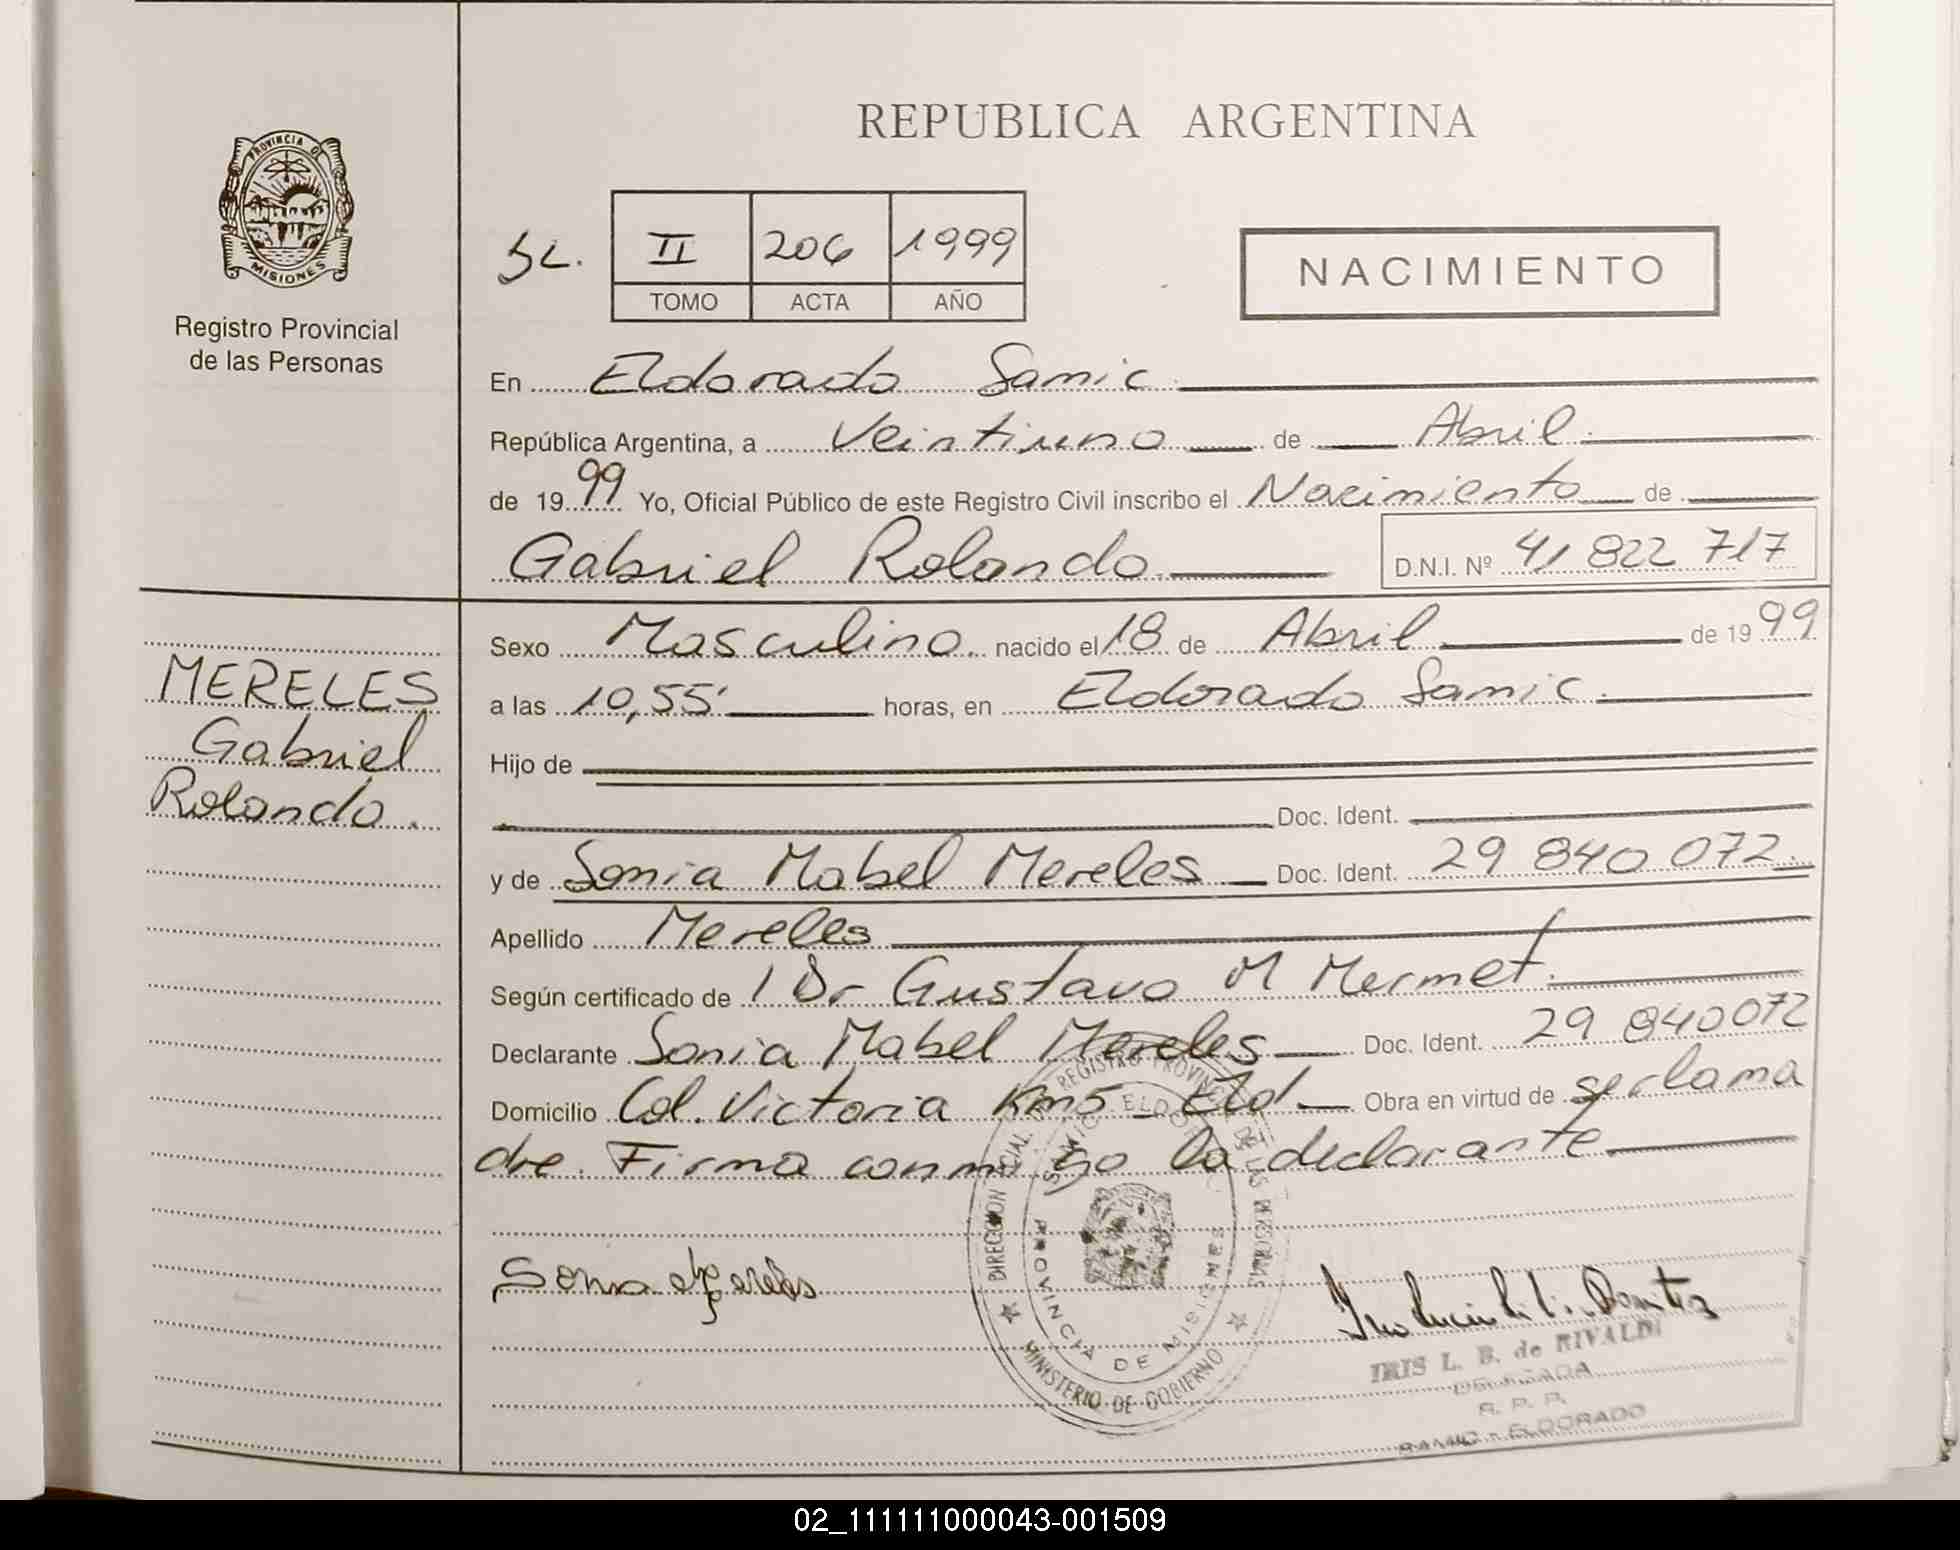 REPUBLICA ARGENTINA
PROVINCIA DE
MISIONES
Registro Provincial
de las Personas
II 206 1999
TOMO ACTA AÑO
NACIMIENTO
En Eldorado Samic.
República Argentina, a Veintiuno de Abril.
de 1999 Yo, Oficial Público de este Registro Civil inscribo el Nacimiento de
Gabriel Rolando. D.N.I. Nº 41 822 717
MERELES
Gabriel
Rolando.
Sexo Masculino. nacido el 18 de Abril de 1999
a las 10,55' horas, en Eldorado Samic.
Hijo de
Doc. Ident.
y de Sonia Mabel Mereles Doc. Ident. 29 840 072.
Apellido Mereles
Según certificado de 1 Dr Gustavo M Mermet.
Declarante Sonia Mabel Mereles Doc. Ident. 29 840072
Domicilio Col. Victoria Km5 - Eld. Obra en virtud de ser la ma
dre. Firma conmigo la declarante
DIRECCION REGISTRO PROVINCIAL DE LAS PERSONAS
SAMIC ELDORADO
PROVINCIA DE MISIONES
MINISTERIO DE GOBIERNO
Sonia Mereles
IRIS L. B. de RIVALDI
DELEGADA
R. P. P.
SAMIC - ELDORADO
02_111111000043-001509